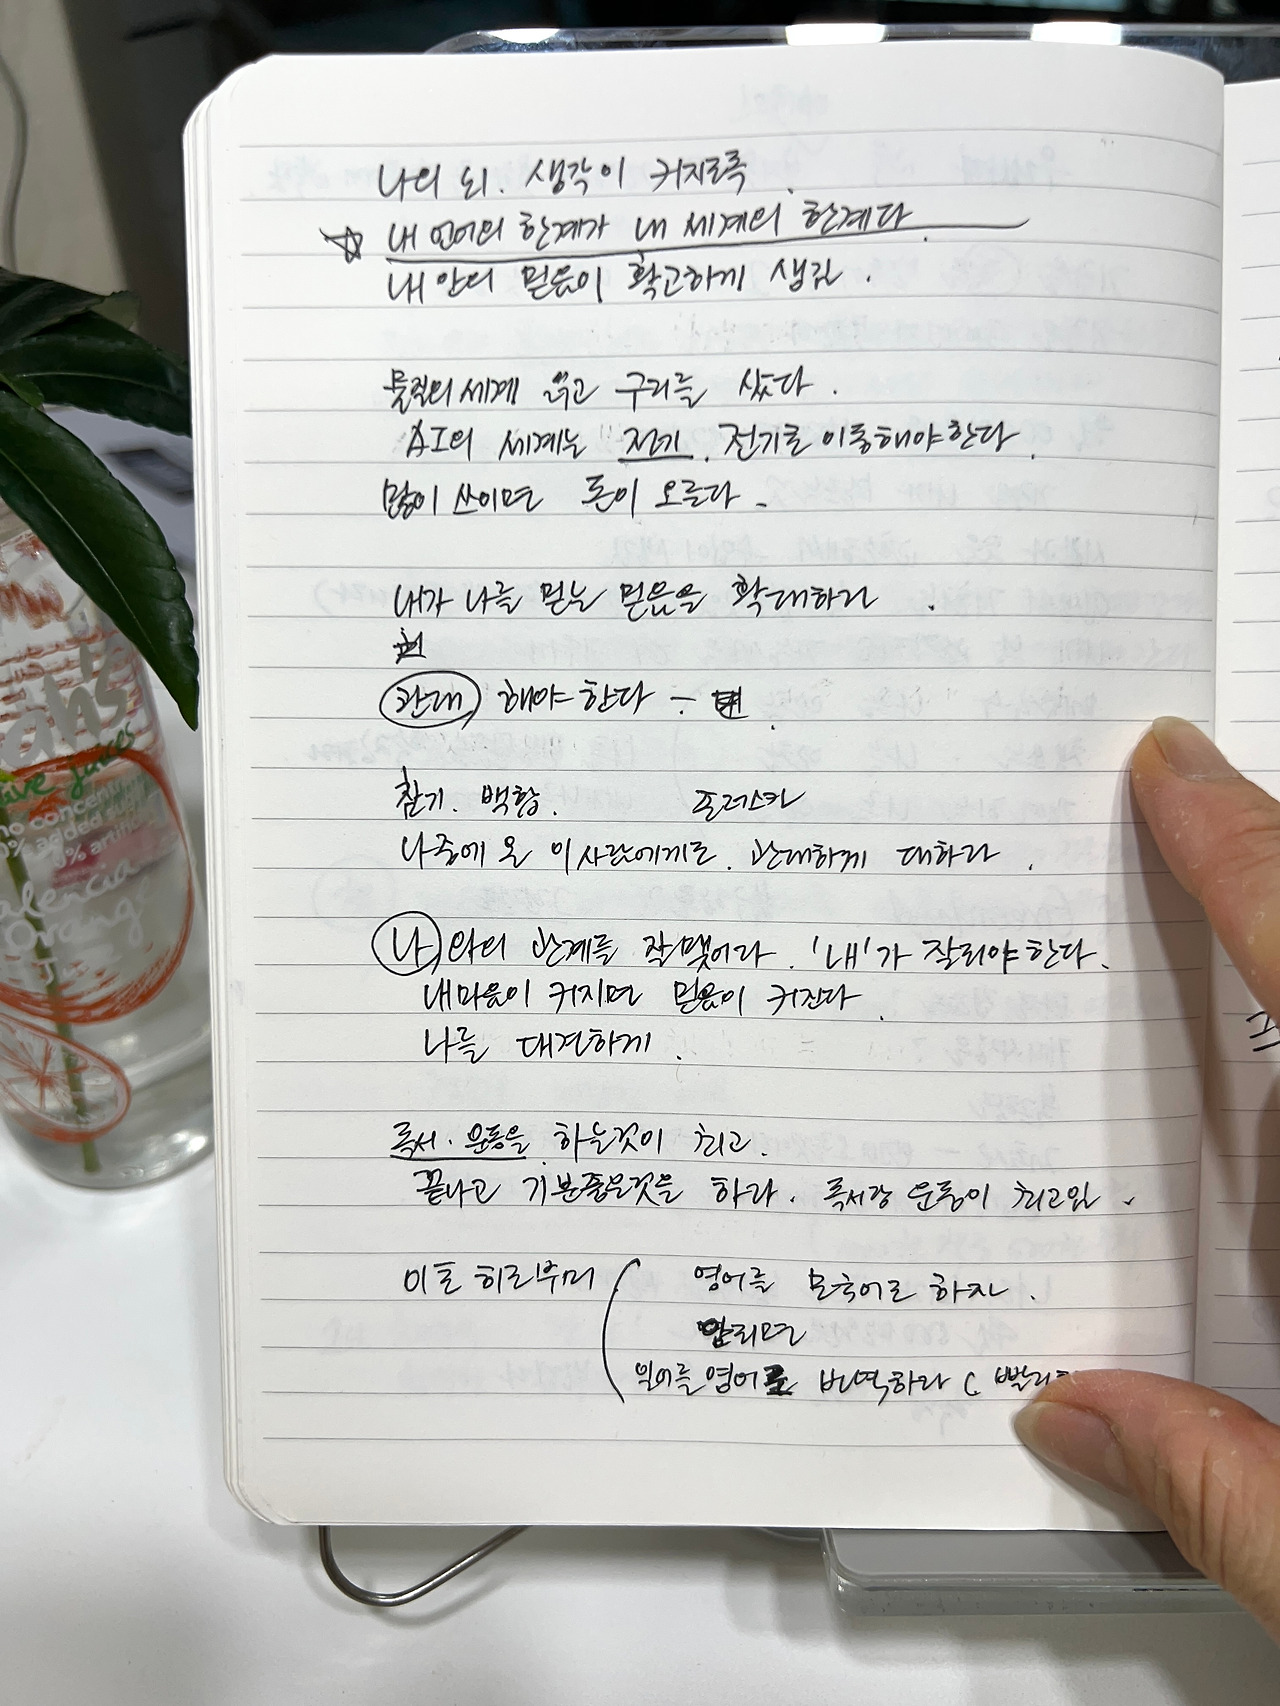 나의 뇌. 생각이 커지도록.
☆ 내 언어의 한계가 내 세계의 한계다.
내 안의 믿음이 확고하게 생김.
물질의 세계 구리를 샀다.
AI의 세계는 전기. 전기로 이동해야한다.
많이 쓰이면 돈이 오른다.
내가 나를 믿는 믿음을 확대하라.
관대 해야한다 -
참기. 백합. 프레스카
나중에 온 이 사람에게도. 관대하게 대하라.
나와의 관계를 잘 맺어라. '내'가 잘되야한다.
내마음이 커지면 믿음이 커진다.
나를 대견하게.
독서. 운동을 하는것이 최고.
끝나고 기분좋은것을 하라. 독서랑 운동이 최고임.
이토 히로부미 영어를 모국어로 하자.
일어를 영어로 번역하라
ah's
ive juices
no concent
% added su
% artifi
alencia
Orange